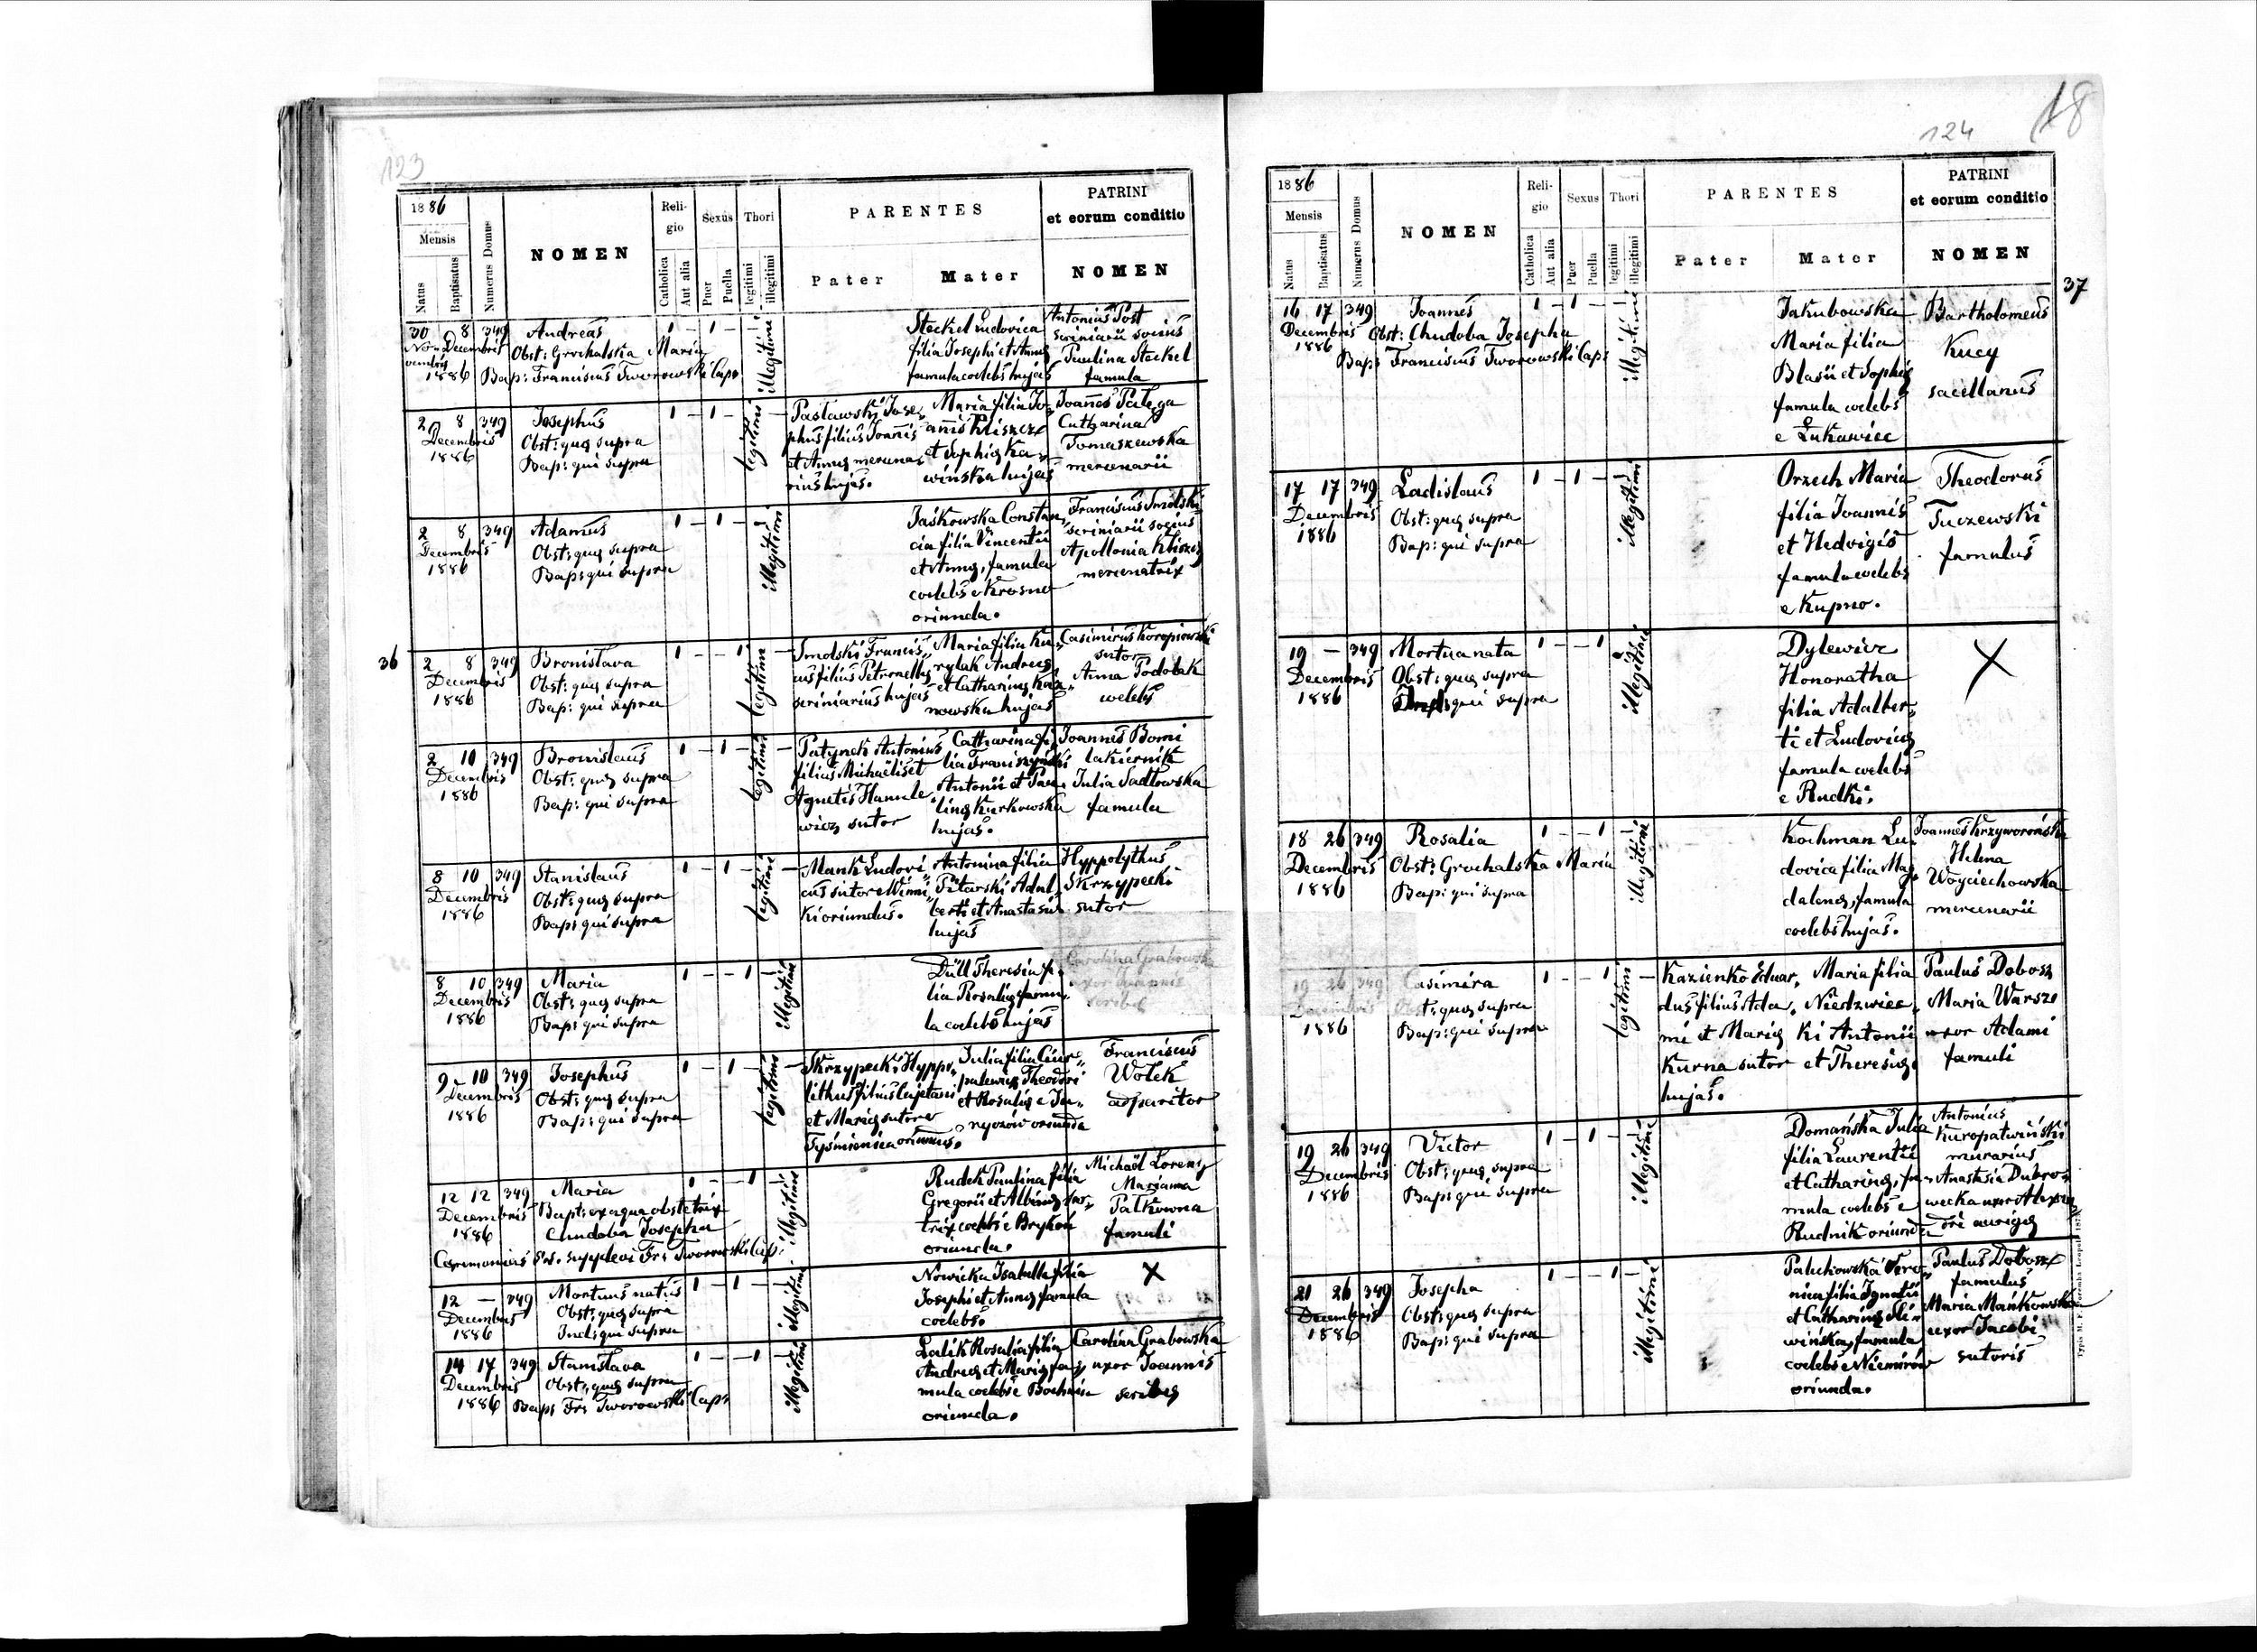 123
1886
Mensis
Natus
Baptisatus
Numerus Domus
NOMEN
Religio
Catholica
Aut alia
Sexus
Puer
Puella
Thori
legitimi
illegitimi
PARENTES
Pater
Mater
PATRINI
et eorum conditio
NOMEN
30 8 349 Andreas 1 - 1 - illegitimi
Novembris Decembris
1886
Obst: Grochalska Maria
Bap: Franciscus Tworowski Cap:
Steckel Ludovica
filia Josephi et Annę
famula coelebs hujas
Antonius Post
scriniarii socius
Paulina Steckel
famula
2 8 349 Josephus 1 - 1 - legitimi -
Decembris
1886
Obst: quę supra
Bap: qui supra
Pasławski Jose„
phus filius Joannis
et Annę mercena„
rius hujas.
Maria filia Jo„
annis Kliszcz
et Sophię Ka„
wińska hujas
Joannes Pałęga
Catharina
Tomaszewska
mercenarii
2 8 349 Adamus 1 - 1 - illegitimi
Decembris
1886
Obst: quę supra
Bap: qui supra
Jaśkowska Constan„
cia filia Vincentii
et Annę, famula
coelebs e Krosno
oriunda.
Franciscus Smolski
scriniarii socius
Apollonia Kliszcz
mercenatrix
36
2 8 349 Bronisława 1 - - 1 legitimi -
Decembris
1886
Obst: quę supra
Bap: qui supra
Smolski Francis„
cus filius Petronellę
scriniarius hujas
Maria filia Ku„
rylak Andreę
et Catharinę Kaz„
nowska hujas
Casimirus Koropiowski
sutor
Anna Podobek
coelebs
2 10 349 Bronislaus 1 - 1 - legitimi -
Decembris
1886
Obst: quę supra
Bap: qui supra
Patynek Antonius
filius Michaëlis et
Agnetis Hanule„
wicz sutor
Catharina fi„
lia Franiszyński
Antonii et Pau„
linę Kurkowska
hujas.
Joannes Bomi
lakiernik
Julia Sadłowska
famula
8 10 349 Stanislaus 1 - 1 - legitimi -
Decembris
1886
Obst: quę supra
Bap: qui supra
Mank Ludovi„
cus sutor e Winni„
ki oriundus.
Antonina filia
Pitarski Adal„
berti et Anastasię
hujas
Hyppolythus
Skrzypecki
sutor
8 10 349 Maria 1 - - 1 - illegitimi
Decembris
1886
Obst: quę supra
Bap: qui supra
Düll Theresia fi„
lia Rosalię famu„
la coelebs hujas
Carolina Grabowska
uxor Joannis
scribę
9 10 349 Josephus 1 - 1 - legitimi -
Decembris
1886
Obst: quę supra
Bap: qui supra
Skrzypecki Hyppo„
lithus filius Cajetani
et Marię sutor e
Tyśmienica oriundus.
Julia filia Ciur„
palewicz Theodori
et Rosalię e Ja„
nyczów oriunda
Franciscus
Wołek
adparitor
12 12 349 Maria 1 - - 1 - illegitimi
Decembris
1886
Bapt: ex aqua obstetrix
Chudoba Josepha
Cęremonias S. supplevi Fr: Tworowski Cap:
Rudek Paulina filia
Gregorii et Albinę sar„
trix coelebs e Brykoń
oriunda.
Michaël Lorenz
Marianna
Pałkówna
famuli
12 - 349 Mortuus natus 1 - 1 - - illegitimi
Decembris
1886
Obst: quę supra
Ind: qui supra
Nowicka Isabella filia
Josephi et Annę famula
coelebs.
X
14 17 349 Stanisława 1 - - 1 - illegitimi
Decembris
1886
Obst: quę supra
Bap: Fr: Tworowski Cap:
Lalik Rosalia filia
Andreę et Marię fa„
mula coelebs e Bochnia
oriunda.
Carolina Grabowska
uxor Joannis
scribę
18
124
1886
Mensis
Natus
Baptisatus
Numerus Domus
NOMEN
Religio
Catholica
Aut alia
Sexus
Puer
Puella
Thori
legitimi
illegitimi
PARENTES
Pater
Mater
PATRINI
et eorum conditio
NOMEN
37
16 17 349 Joannes 1 - 1 - - illegitimi
Decembris
1886
Obst: Chudoba Josepha
Bap: Franciscus Tworowski Cap:
Jakubowska
Maria filia
Blasii et Sophię
famula coelebs
e Łukawiec
Bartholomeus
Kucy
sacellanus
17 17 349 Ladislaus 1 - 1 - - illegitimi
Decembris
1886
Obst: quę supra
Bap: qui supra
Orzech Maria
filia Joannis
et Hedvigis
famula coelebs
e Kupno.
Theodorus
Tuczewski
famulus
19 - 349 Mortua nata 1 - - 1 illegitimi
Decembris
1886
Obst: quę supra
qui supra
Dylewicz
Honoratha
filia Adalber„
ti et Ludovicę
famula coelebs
e Rudki.
X
18 26 349 Rosalia 1 - - 1 - illegitimi
Decembris
1886
Obst: Grochalska Maria
Bap: qui supra
Kochman Lu„
dovica filia Mag„
dalenę, famula
coelebs hujas.
Joannes Krzyworońska
Helena
Woyciechowska
mercenarii
19 26 349 Casimira 1 - - 1 legitimi -
Decembris
1886
Obst: quę supra
Bap: qui supra
Kazienko Eduar„
dus filius Ada„
mi et Marię
Kurna sutor
hujas.
Maria filia
Niedzwiec„
ki Antonii
et Theresię
Paulus Dobosz
Maria Warsze
uxor Adami
famuli
19 26 349 Victor 1 - 1 - - illegitimi
Decembris
1886
Obst: quę supra
Bap: qui supra
Domańska Julia
filia Laurentii
et Catharinę, fa„
mula coelebs e
Rudnik oriunda
Antonius
Kuropatwiński
murarius
Anastasia Dubro„
wecka uxor Alexan„
dri aurigę
21 26 349 Josepha 1 - - 1 - illegitimi
Decembris
1886
Obst: quę supra
Bap: qui supra
Paluchowska Vero„
nica filia Ignatii
et Catharinę Śli„
wińska, famula
coelebs e Niemirów
oriunda.
Paulus Dobosz
famulus
Maria Mańkowska
uxor Jacobi
sutoris